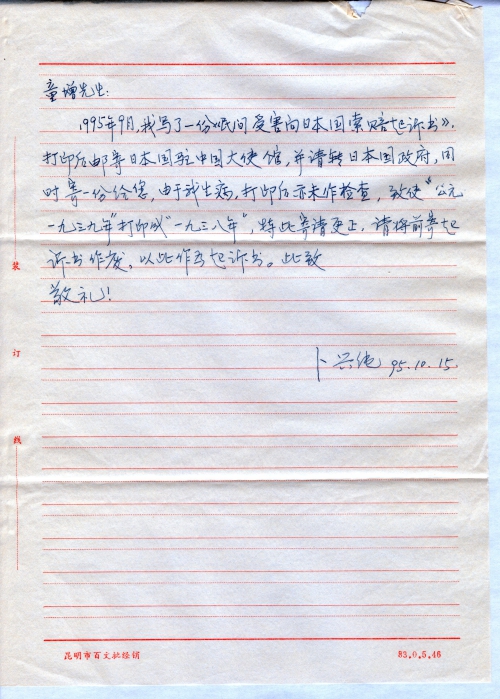 童增先生:
1995年9月,我写了一份《民间受害向日本国索赔起诉书》,
打印后邮寄日本国驻中国大使馆,并请转日本国政府,同
时寄一份给您,由于我生病,打印后亦未作检查,致使“公元
一九三九年”打印成“一九三八年”,特此寄请更正,请将前寄起
诉书作废,以此作为起诉书。此致
敬礼!
卜兴纯 95.10.15
装
订
线
昆明市百文批经销
83.0.5.46